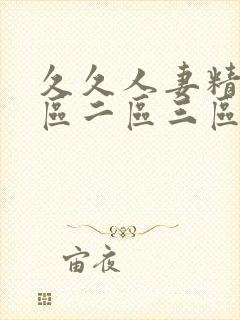 久久人妻精
區二區三區
宙夜